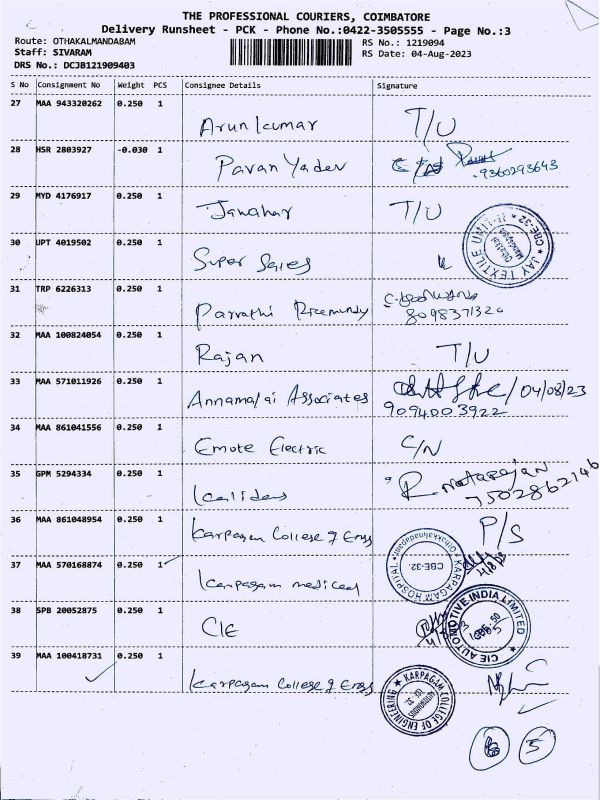 THE PROFESSIONAL COURIERS, COIMBATORE
Delivery Runsheet - PCK - Phone No.:0422-3505555 - Page No.:3
Route: OTHAKALMANDABAM
RS No.: 1219094
Staff: SIVARAM
RS Date: 04-Aug-2023
DRS No.: DCJB121909403
S No Consignment No Weight PCS Consignee Details Signature
27 MAA 943320262 0.250 1 Arun kumar T/U
28 HSR 2803927 -0.030 1 Pavan Yadev
9360293643
29 MYD 4176917 0.250 1 Jawahar T/U
JAY TEXTILE UNIT-II ★ CBE-32 ★
30 UPT 4019502 0.250 1 Super Sales
31 TRP 6226313 0.250 1 Parvathi Ricemundy
8098371320
32 MAA 100824054 0.250 1 Rajan T/U
33 MAA 571011926 0.250 1 Annamalai Associates /04/08/23
9094003922
34 MAA 861041556 0.250 1 Emote Electric C/N
35 GPM 5294334 0.250 1 R. Natarajan
7502862146
36 MAA 861048954 0.250 1 Karpagam College of Engg P/S
KARPAGAM HOSPITAL
CBE-32.
37 MAA 570168874 0.250 1 Karpagam medical
38 SPB 20052875 0.250 1 CIE
CIE AUTOMOTIVE INDIA LIMITED
39 MAA 100418731 0.250 1 Karpagam College of Engg
KARPAGAM COLLEGE OF ENGINEERING
5